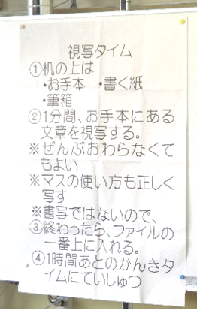 視写タイム
①机の上は
・お手本 ・書く紙
・筆箱
②1分間、お手本にある
文章を視写する。
※ぜんぶおわらなくて
もよい
※マスの使い方も正しく
写す
※書写ではないので、
③終わったら、ファイルの
一番上に入れる。
④1時間あとのかんきタ
イムにていしゅつ